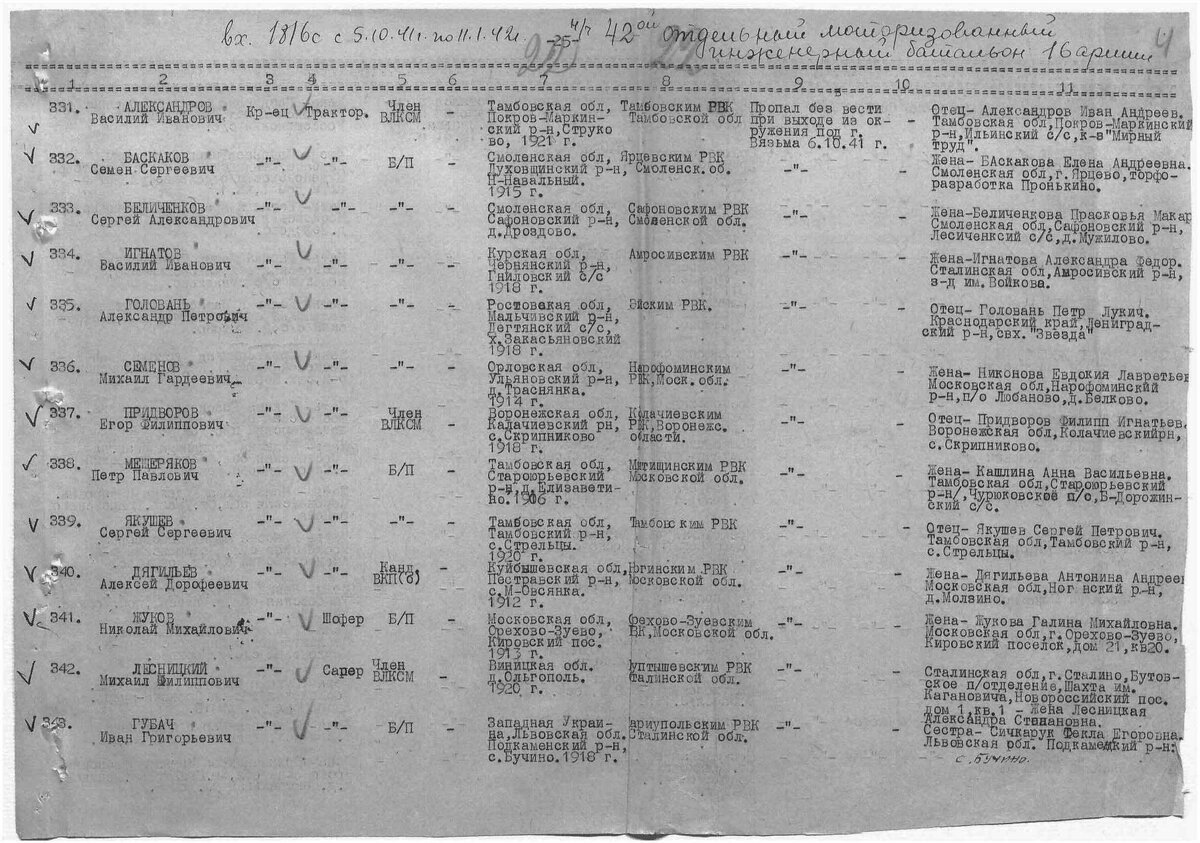 вх. 1816с с 5.10.41г. по 11.1.42г. -25- ч/г 42ой отдельный моторизованный 4
инженерный батальон 16 армии
1 2 3 4 5 6 7 8 9 10 11
331. АЛЕКСАНДРОВ Кр-ец Трактор. Член - Тамбовская обл, Тамбовским РВК Пропал без вести - Отец- Александров Иван Андреев.
Василий Иванович ВЛКСМ Покров-Маркин- Тамбовской обл при выходе из ок- Тамбовская обл,Покров-Маркинский
ский р-н,Струко ружения под г. р-н,Ильинский с/с,к-в"Мирный
во, 1921 г. Вязьма 6.10.41 г. труд".
332. БАСКАКОВ -"- -"- Б/П - Смоленская обл, Ярцевским РВК -"- - Жена- БАскакова Елена Андреевна.
Семен Сергеевич Духовщинский р-н, Смоленск.об. Смоленская обл,г.Ярцево,торфо-
Н-Навальный. разработка Пронькино.
1915 г.
333. БЕЛИЧЕНКОВ -"- -"- -"- - Смоленская обл, Сафоновским РВК -"- - Жена-Беличенкова Прасковья Макар
Сергей Александрович Сафоновский р-н, Смоленской обл. Смоленская обл,Сафоновский р-н,
д.Дроздово. Лесиченксий с/с,д.Мужилово.
334. ИГНАТОВ -"- -"- -"- - Курская обл, Амросивским РВК -"- - Жена-Игнатова Александра Федор.
Василий Иванович Чернянский р-н, Сталинская обл,Амросивский р-н,
Гниловский с/с з-д им.Войкова.
1918 г.
335. ГОЛОВАНЬ -"- -"- -"- - Ростовская обл, Ейским РВК. -"- - Отец- Головань Петр Лукич.
Александр Петрович Мальчивский р-н, Краснодарский край,Лениград-
Дегтянский с/с, ский р-н,свх."Звезда"
х.Закасьяновский
1918 г.
336. СЕМЕНОВ -"- -"- -"- - Орловская обл, Нарофоминским -"- - Жена- Никонова Евдокия Лавретьев
Михаил Гардеевич Ульяновский р-н, РВК,Моск.обл. Московская обл,Нарофоминский
д.Траснянка. р-н,п/о Любаново,д.Белково.
1914 г.
337. ПРИДВОРОВ -"- -"- Член - Воронежская обл, Колачиевским -"- - Отец- Придворов Филипп Игнатьев.
Егор Филиппович ВЛКСМ Калачиевский рн, РВК,Воронежс. Воронежская обл,Колачиевскийрн,
с.Скрипниково области. с.Скрипниково.
1918 г.
338. МЕЩЕРЯКОВ -"- -"- Б/П - Тамбовская обл, Мытищинским РВК -"- - Жена- Кашлина Анна Васильевна.
Петр Павлович Староюрьевский Московской обл. Тамбовская обл,Староюрьевский
р-н,д.Елизавети- р-н/,Чурюковское п/с,Б-Дорожин-
но.1906 г. ский с/с.
339. ЯКУШЕВ -"- -"- -"- - Тамбовская обл, Тамбовским РВК -"- - Отец- Якушев Сергей Петрович.
Сергей Сергеевич Тамбовский р-н, Тамбовская обл,Тамбовский р-н,
с.Стрельцы. с.Стрельцы.
1920 г.
340. ДЯГИЛЬЕВ -"- -"- Канд. - Куйбышевская обл, Ногинским РВК -"- - Жена- Дягильева Антонина Андреев
Алексей Дорофеевич ВКП(б) Пестравский р-н, Московской обл. Московская обл,Ног нский р-н,
с.М-Овсянка. д.Молзино.
1912 г.
341. ЖУКОВ -"- Шофер Б/П - Московская обл, Орехово-Зуевским -"- - Жена- Жукова Галина Михайловна.
Николай Михайлович Орехово-Зуево, ВК,Московской обл. Московская обл,г.Орехово-Зуево,
Кировский пос. Кировский поселок,дом 21,кв20.
1913 г.
342. ЛЕСНИЦКИЙ -"- Сапер Член - Виницкая обл. уптышевским РВК -"- - Сталинская обл,г.Сталино,Бутов-
Михаил Филиппович ВЛКСМ д.Ольгополь. Сталинской обл. ское п/отделение,Шахта им.
1920 г. Кагановича,Новороссийский пос.
дом 1,кв.1 - Жена Лесницкая
Александра Степановна.
343. ГУБАЧ -"- -"- Б/П - Западная Украи- Мариупольским РВК -"- - Сестра- Сичкарук Фекла Егоровна.
Иван Григорьевич на,Львовская обл. Сталинской обл. Львовская обл. Подкаменский р-н.
Подкаменский р-н, с.Бучино.
с.Бучино.1918 г.